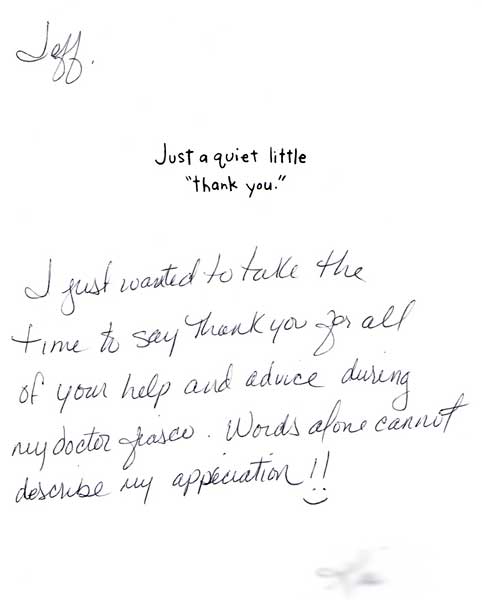 Jeff.
Just a quiet little
"thank you."
I just wanted to take the
time to say thank you for all
of your help and advice during
my doctor fiasco. Words alone cannot
describe my appeciation!!